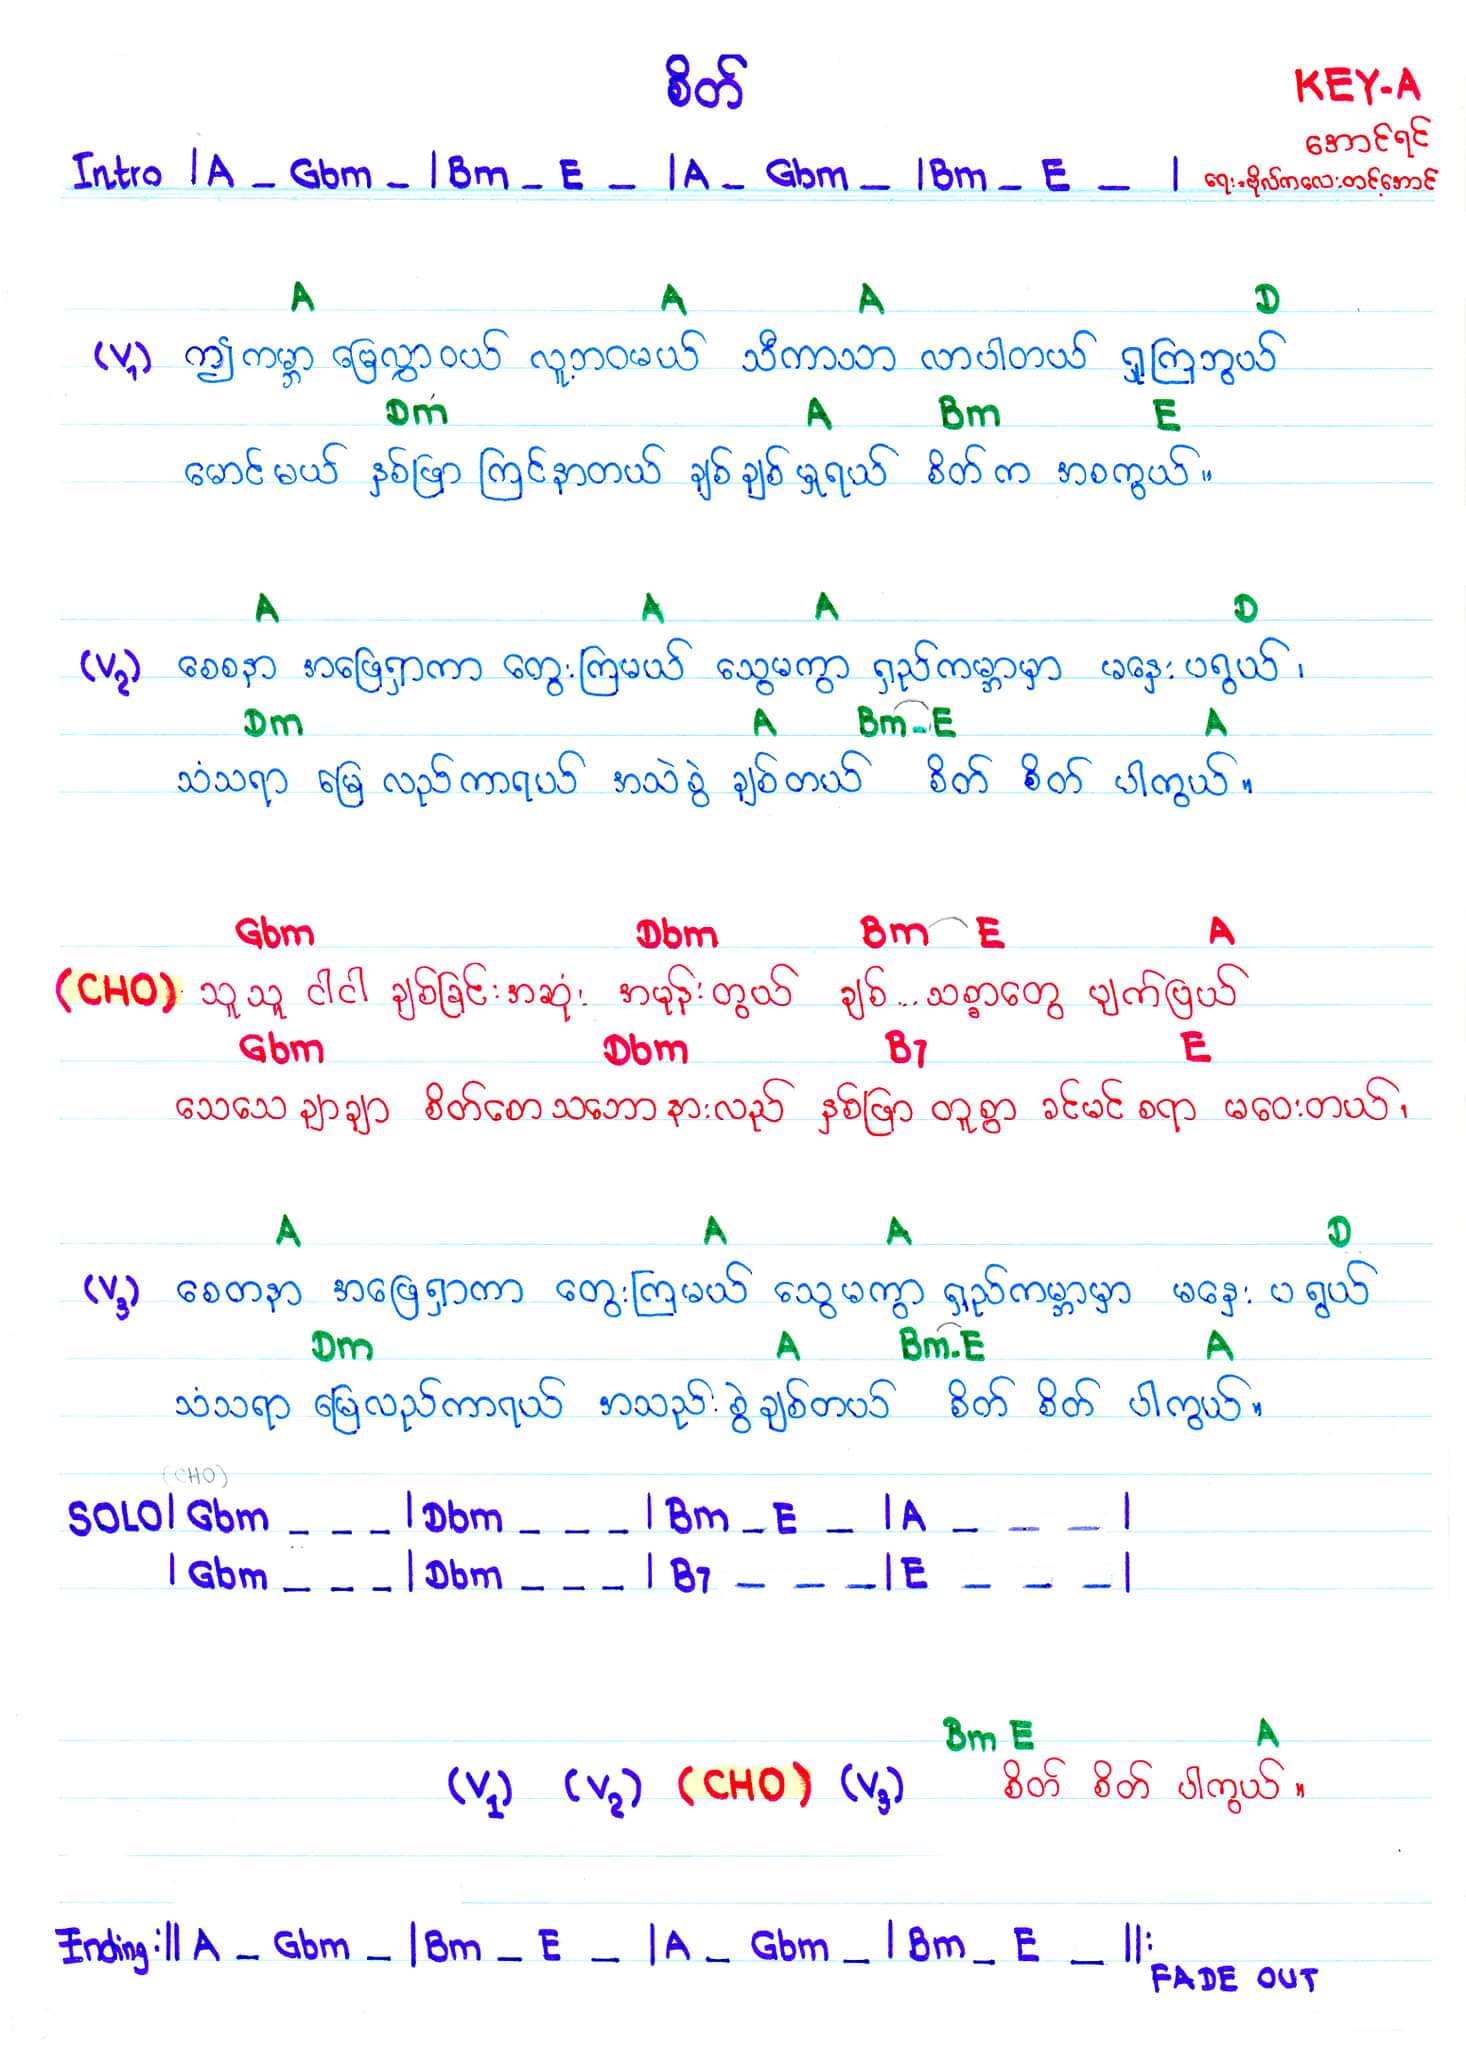 စိတ်
KEY-A
အောင်ရင်
Intro |A _ Gbm _ |Bm _ E _ |A _ Gbm _ |Bm _ E _ |
ရေး-ဗိုလ်ကလေးတင့်အောင်
A A A D
(V1) ဤကမ္ဘာ မြေလွှာဝယ် လူ့ဘဝမယ် သီကာသာ လာပါတယ် ရှုကြဘွယ်
Dm A Bm E
မောင်မယ် နှစ်ဖြာ ကြင်နာတယ် ချစ်ချစ်မှုရယ် စိတ်က အစကွယ်။
A A A D
(V2) စေစနာ အဖြေရှာကာ တွေးကြမယ် သွေမကွာ ရှည်ကမ္ဘာမှာ မနှေးပရွယ်၊
Dm A Bm-E A
သံသရာ မြေလည်ကာရယ် အသဲစွဲ ချစ်တယ် စိတ် စိတ် ပါကွယ်။
Gbm Dbm Bm E A
(CHO) သူသူ ငါငါ ချစ်ခြင်းအဆုံး အမုန်းတွယ် ချစ်...သစ္စာတွေ ပျက်ပြယ်
Gbm Dbm B7 E
သေသေချာချာ စိတ်စေသဘောနားလည် နှစ်ဖြာ တူစွာ ခင်မင်စရာ မဝေးတယ်၊
A A A D
(V3) စေတနာ အဖြေရှာကာ တွေးကြမယ် သွေမကွာ ရှည်ကမ္ဘာမှာ မနှေးပရွယ်
Dm A Bm-E A
သံသရာ မြေလည်ကာရယ် အသည်းစွဲချစ်တယ် စိတ် စိတ် ပါကွယ်။
(CHO)
SOLO| Gbm _ _ _ |Dbm _ _ _ |Bm _ E _ |A _ _ _ |
|Gbm _ _ _ |Dbm _ _ _ |B7 _ _ _ |E _ _ _ |
Bm E A
(V1) (V2) (CHO) (V3) စိတ် စိတ် ပါကွယ်။
Ending:|| A _ Gbm _ |Bm _ E _ |A _ Gbm _ |Bm _ E _ ||:
FADE OUT